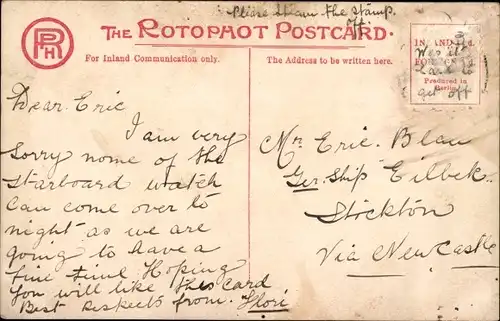 Please steam the stamp
off.
THE ROTOPHOT POSTCARD.
RPH
For Inland Communication only.
The Address to be written here.
Was it
hard to
get off
Produced in
Berlin
Dear Eric
I am very
sorry nome of the
starboard watch
can come over to
night as we are
going to have a
fine time Hoping
you will like this card
Best Respects from
Mr Eric. Blau
Ger. Ship Eilbek.
Stockton
Via Newcastle